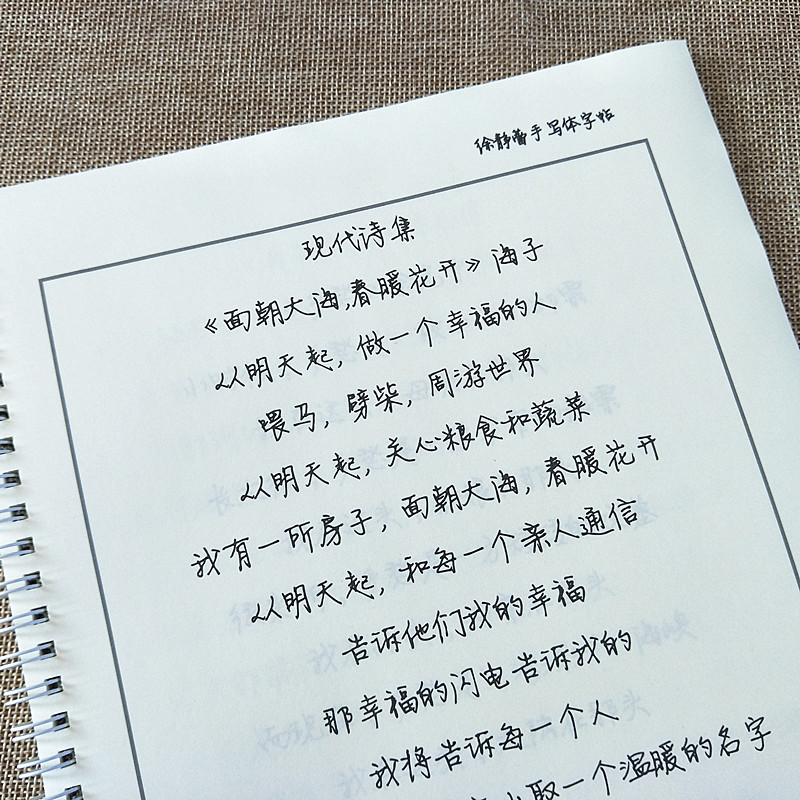 徐静蕾手写体字帖
现代诗集
《面朝大海,春暖花开》海子
从明天起,做一个幸福的人
喂马,劈柴,周游世界
从明天起,关心粮食和蔬菜
我有一所房子,面朝大海,春暖花开
从明天起,和每一个亲人通信
告诉他们我的幸福
那幸福的闪电告诉我的
我将告诉每一个人
取一个温暖的名字